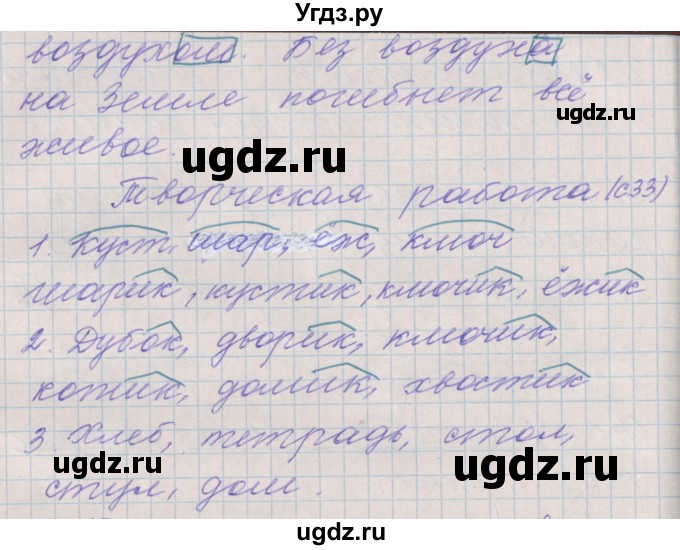 Угдз.ру
воздухом. Без воздуха
на Земле погибнет всё
живое.
ugdz.ru ugdz.ru
Творческая работа (с33)
1. Куст, шар, ёж, ключ
шарик, кустик, ключик, ёжик
2. Дубок, дворик, ключик,
ugdz.ru
котик, домик, хвостик
3 Хлеб, тетрадь, стол,
ugdz.ru ugdz.ru
стул, дом.
ugdz.ru